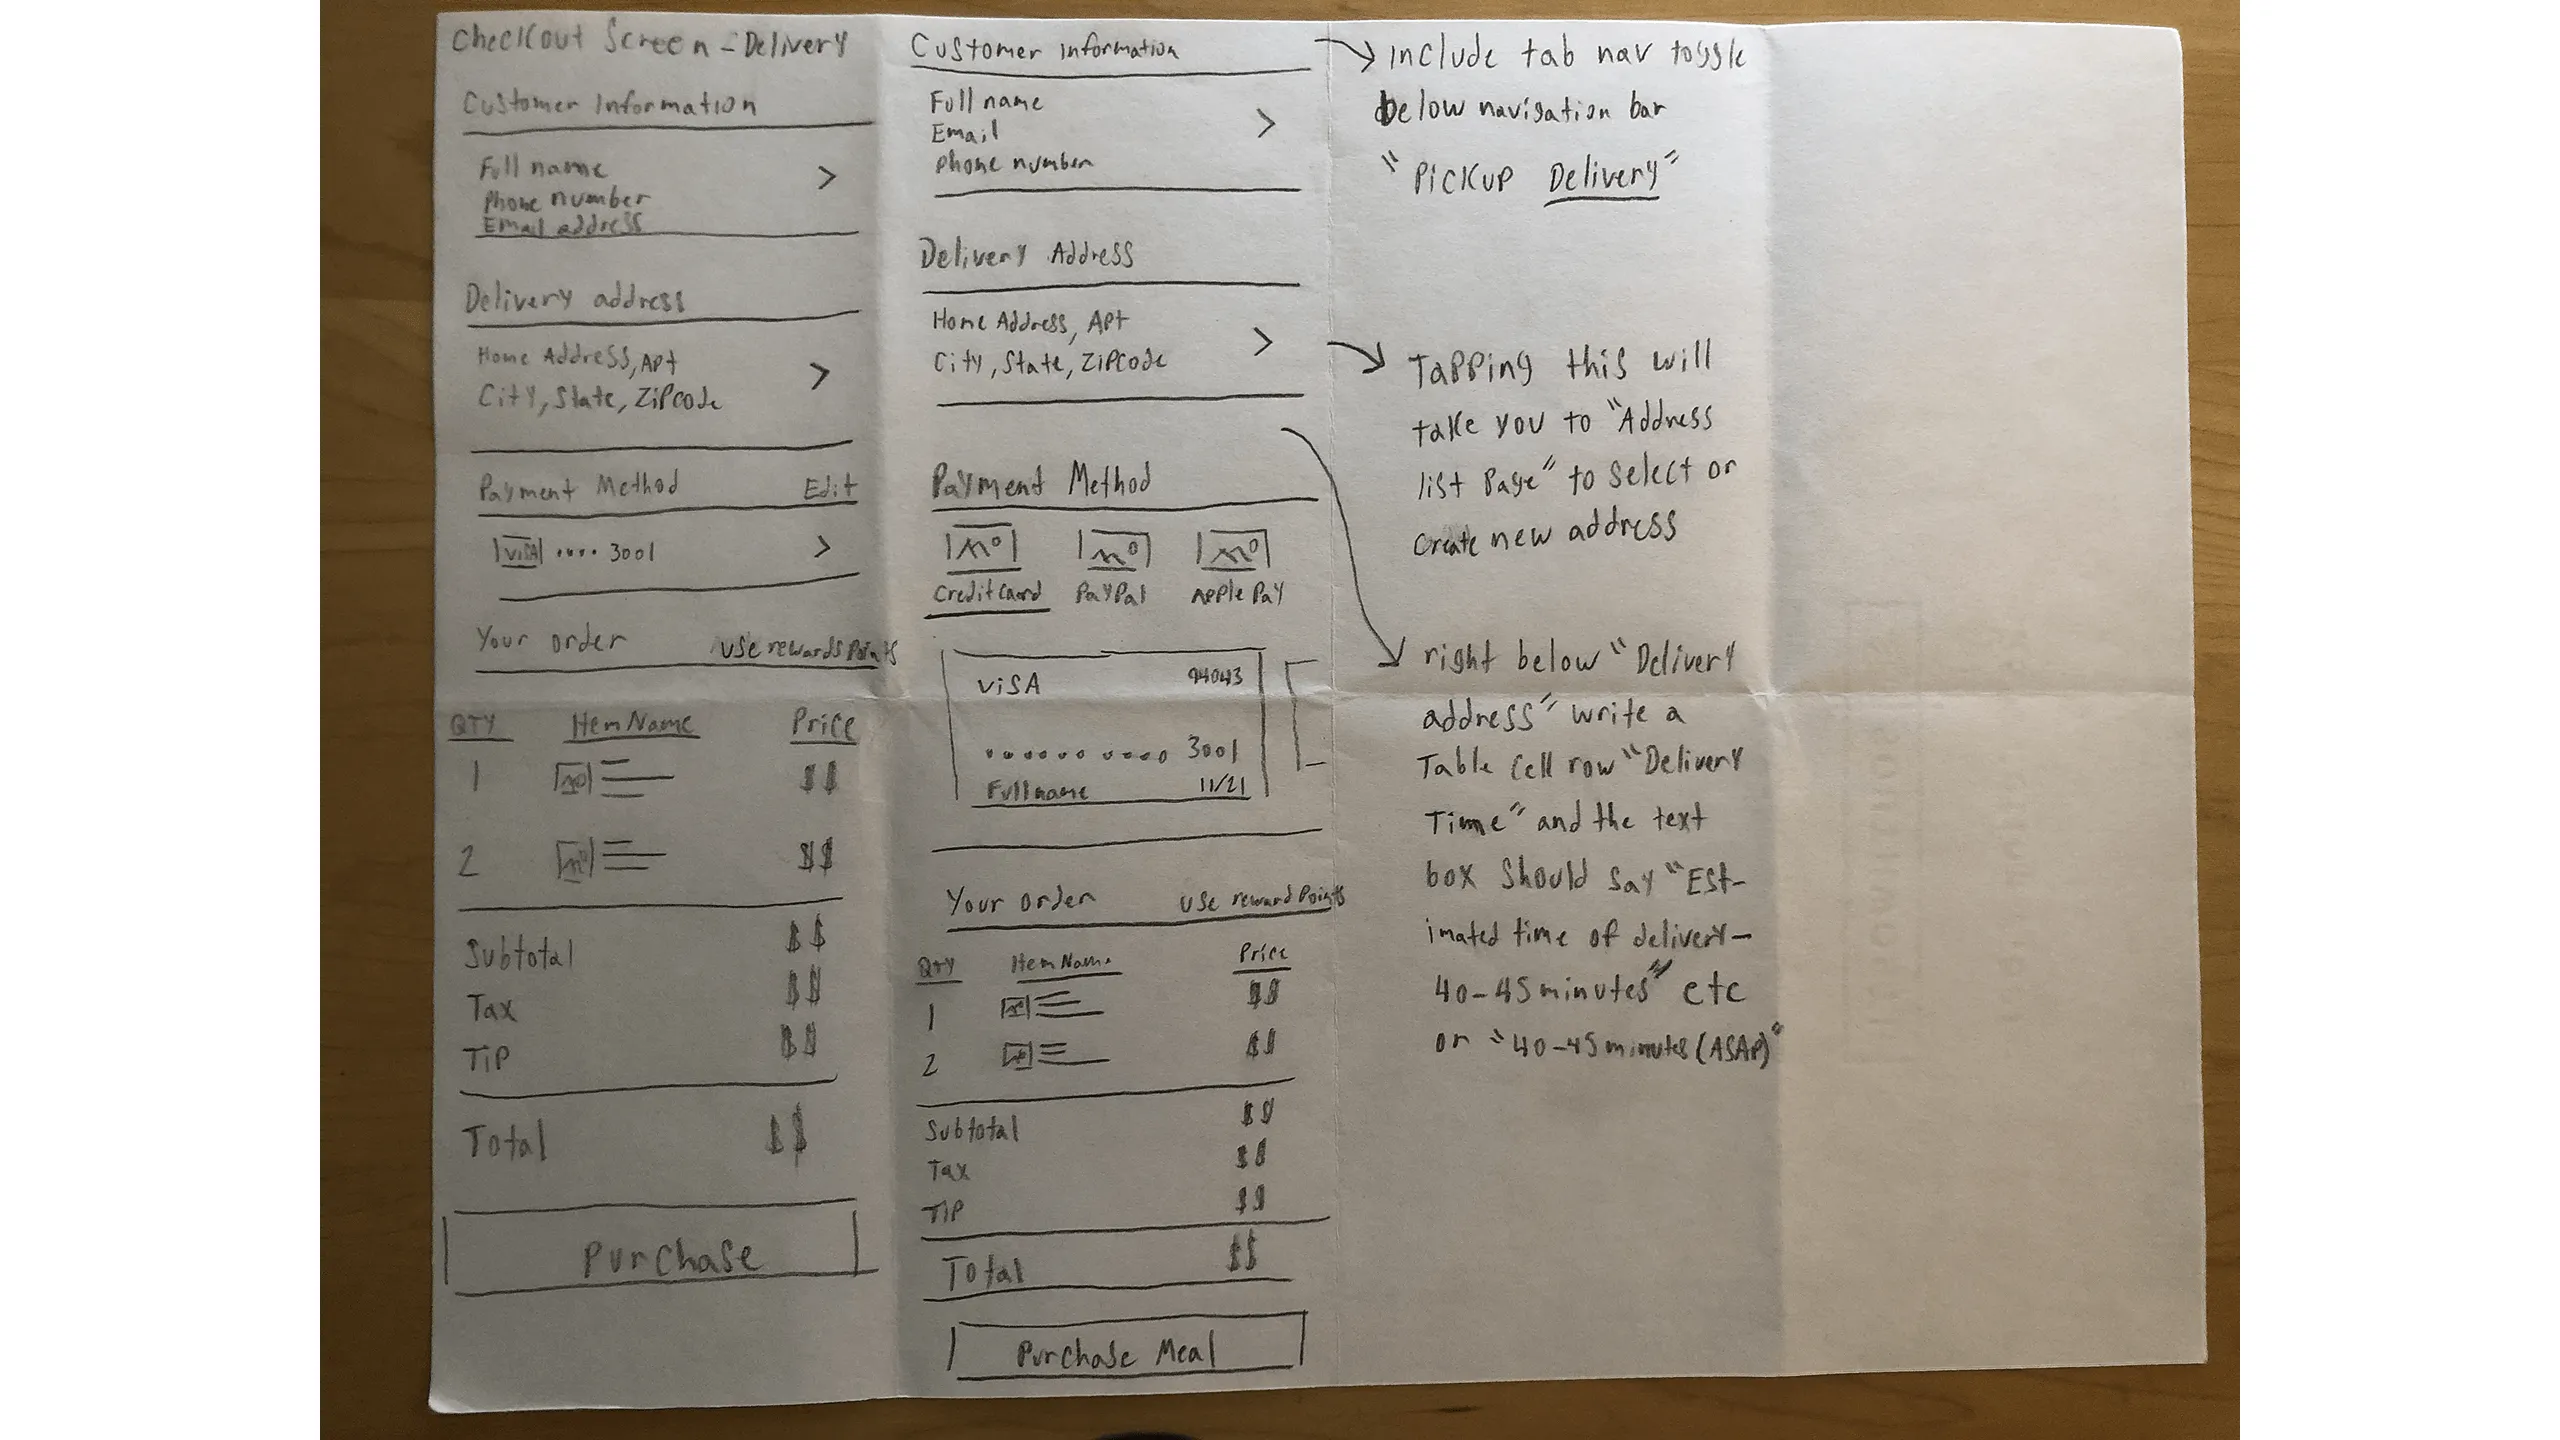 Checkout Screen - Delivery
Customer Information
Full name
Phone number
Email address
Delivery address
Home Address, Apt
City, State, Zipcode
Payment Method Edit
VISA .... 3001
Your order use rewards points
QTY Item Name Price
1 $$
2 $$
Subtotal $$
Tax $$
Tip $$
Total $$
Purchase
Customer Information
Full name
Email
Phone number
Delivery Address
Home Address, Apt
City, State, Zipcode
Payment Method
Credit Card PayPal Apple Pay
VISA 94043
.......... 3001
Full name 11/21
Your order use reward points
QTY Item Name Price
1 $$
2 $$
Subtotal $$
Tax $$
Tip $$
Total $$
Purchase Meal
Include tab nav toggle
below navigation bar
"Pickup Delivery"
Tapping this will
take you to "Address
list Page" to select or
create new address
right below "Delivery
address" write a
Table Cell row "Delivery
Time" and the text
box should say "Est-
imated time of delivery-
40-45 minutes" etc
or "40-45 minutes (ASAP)"